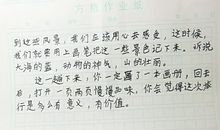 方格作业纸
到这些风景,我们应该用心去感受,这时候,
我们就要用上画笔把这一些景色记下来,诉说
大海的蓝,动物的神气,山的壮丽。
这一趟下来,你一定画了一本画册,回去
后,打开一页两页慢慢品味,你会觉得这次旅
行是多么有意义,有价值。